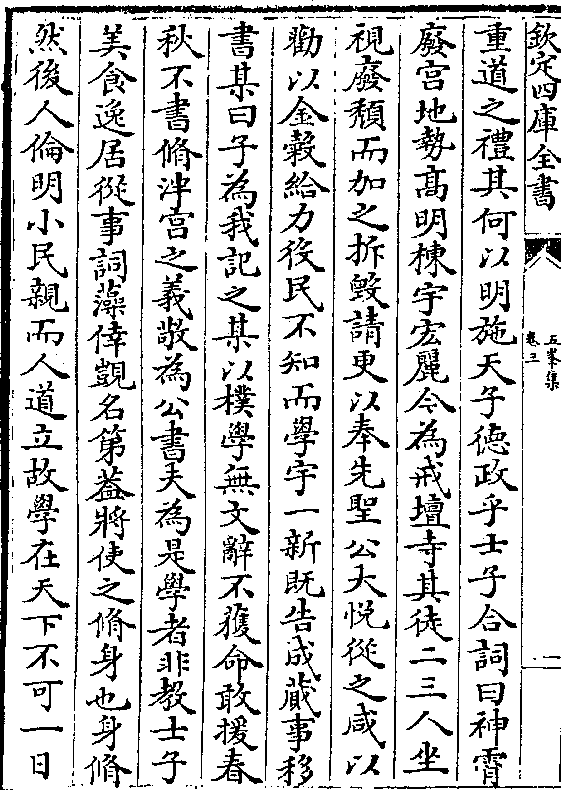 欽定四庫全書
五峯集
卷三
重道之禮其何以明施天子德政乎士子合詞曰神霄
廢宫地勢髙明棟宇宏麗今為戒壇寺其徒二三人坐
視廢頽而加之拆毀請更以奉先聖公大悦從之咸以
勸以金榖給力役民不知而學宇一新既告成蕆事移
書某曰子為我記之某以樸學無文辭不獲命敢援春
秋不書脩泮宫之義敬為公書夫為是學者非教士子
美食逸居從事詞藻倖覬名第葢將使之脩身也身脩
然後人倫明小民親而人道立故學在天下不可一日